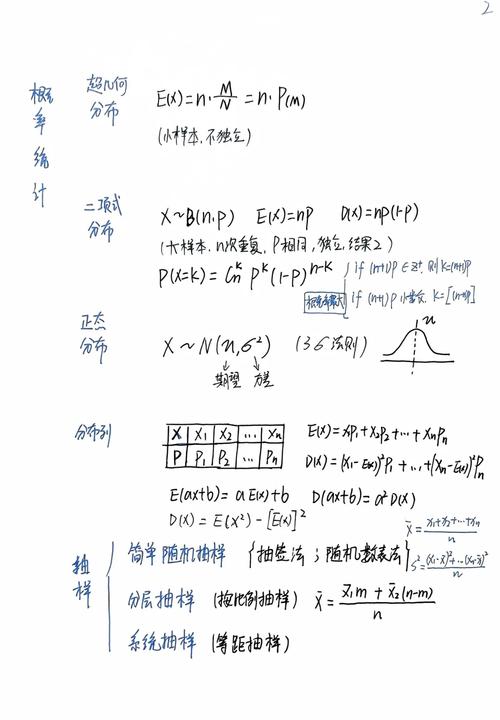 2
概率统计
超几何分布
E(X)=n·M/N=n·P(M)
(小样本,不独立)
二项式分布
X~B(n,p) E(X)=np D(X)=np(1-p)
(大样本,n次重复,P相同,独立,结果2)
P(X=K)=Cn^k P^k(1-p)^n-k
概率最大
if (n+1)P∈Z+,则K=(n+1)P
if (n+1)P小数,K=[(n+1)P]
正态分布
X~N(u,σ²) (3σ法则) u
期望 方差
分布列
X X1 X2 ... Xn
P P1 P2 ... Pn
E(X)=X1P1+X2P2+...+XnPn
D(X)=(X1-E(X))²P1+...+(Xn-E(X))²Pn
E(ax+b)=aE(x)+b D(ax+b)=a²D(X)
D(X)=E(X²)-[E(X)]²
抽样
简单随机抽样 {抽签法;随机数表法}
x̄=(x1+x2+...+xn)/n
s²=((x1-x̄)²+...(xn-x̄)²)/n
分层抽样 (按比例抽样) x̄=(x̄1m+x̄2(n-m))/n
系统抽样 (等距抽样)